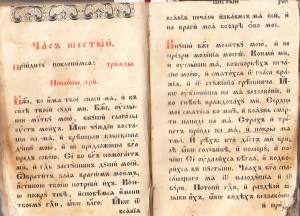 Ча́съ шесты́й,
Прїиди́те поклони́мсѧ. три́жды.
Поклоны, три.
Бже, во имѧ твое спаси мѧ, и въ
силѣ твоей сꙋди ми. Бже, оуслы
ши молитвꙋ мою, внꙋши глаголы
оустъ моихъ. Ꙗко чюждїи воста
ша на мѧ, и крѣпцыи взыскаша
дꙋшꙋ мою, и не предложиша бга
предъ собою. Се бо бгъ помогаетъ
ми, и гдь застꙋпникъ дꙋши моей.
Ѿвратитъ ѕлаѧ врагомъ моимъ,
истиною твоею потреби ихъ. Волею
пожрꙋ тебѣ, исповѣмсѧ имени
твоемꙋ гди, ꙗко благо. Ꙗко ѿ
всѧкїѧ
шестый
всѧкїѧ печали избавилъ мѧ еси, и
на враги моѧ воззрѣ око мое.
Внꙋши бже молитвꙋ мою, и
не презри моленїѧ моего. Вонми
ми, и оуслыши мѧ, возскорбѣхъ печа
лїю моею, и смѧтохсѧ ѿ гласа вра
жїѧ, и ѿ стꙋженїѧ грѣшнича. Ꙗко
оуклониша на мѧ беззаконїе, и
во гнѣвѣ враждовахꙋ ми. Сердце
мое смѧтесѧ во мнѣ, и боѧзнь
смерти нападе на мѧ. Страхъ и тре
петъ прїиде на мѧ, и покры мѧ
тма. И рѣхъ, кто дастъ ми крилѣ
ꙗко голꙋбинѣ, и полещꙋ и почї
ю. Се оудалихсѧ бѣгаѧ, и водво
рихсѧ въ пꙋстыни. Чаѧхъ бга спа
сающаго мѧ ѿ малодꙋшїѧ и ѿ
бꙋри. Потопи гди, и раздѣли ѧзы
ки ихъ, ꙗко видѣхъ